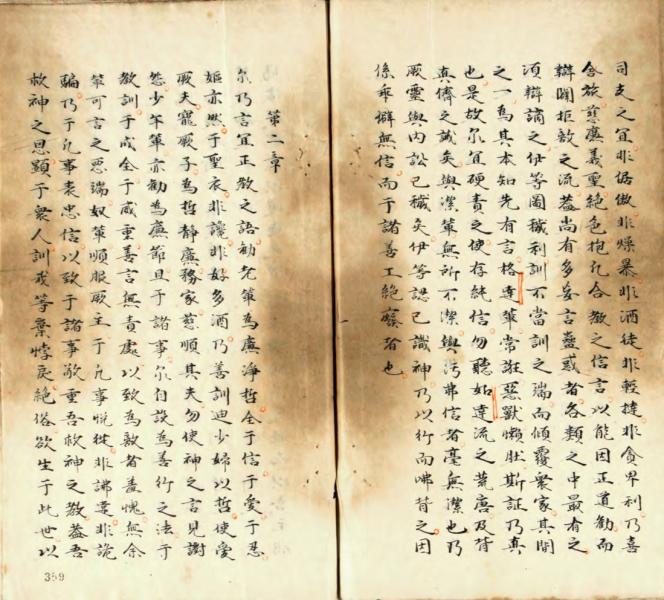 司支之宜非倨傲非燥暴非酒徒非輕撻非貪卑利乃喜
舍旅慈廉義聖絕色抱凡合教之信言以能因正道勸而
辯闢拒敵之流葢尚有多妄言蠱惑者各類之中最有之
須辯謫之伊等圖穢利訓不當訓之端而傾覆衆家其間
之一為其本知先有言格達輩常誑惡獸懶肚斯証乃真
也是故尔宜硬責之使存純信勿聽如達流之荒唐及背
真儕之誡矣與潔輩無所不潔與污弗信者毫無潔也乃
厥靈與內訟已穢矣伊等認己識神乃以行而咈背之因
係乖僻無信而于諸善工絕廢者也
第二章
尔乃言宜正教之語勸老輩為廉淨哲全于信于愛于忍
嫗亦然于聖衣非讒非好多酒乃善訓迪少婦以哲使愛
厥夫寵厥子為哲靜廉務家慈順其夫勿使神之言見謝
怨少年輩亦勸為廉節且于諸事尔自設為善行之法于
教訓于成全于威重善言無責處以致為敵者羞愧無余
等可言之惡端奴輩順服厥主于凡事悅從非違非詭
騙乃于凡事表忠信以致于諸事敬重吾救神之教葢吾
救神之恩顯于衆人訓戒等棄悖戾絕俗欲生于此世以
359